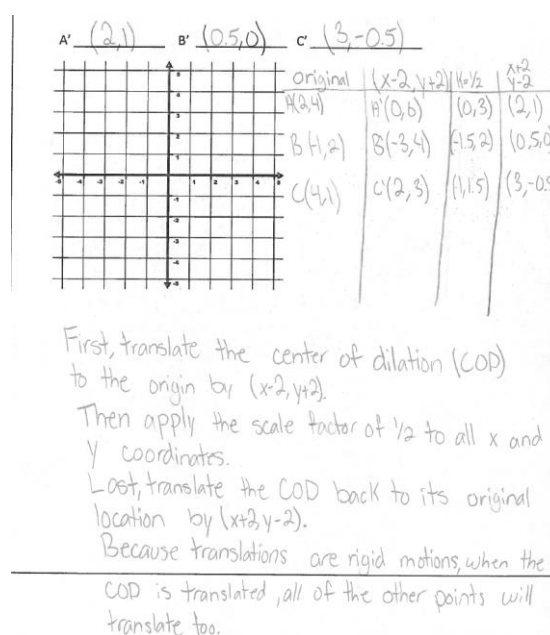 A' (2,1) B' (0.5,0) C' (3,-0.5)
original | (x-2, y+2) | K=1/2 | x+2 y-2
A(2,4) | A'(0,6) | (0,3) | (2,1)
B(-1,2) | B'(-3,4) | (-1.5,2) | (0.5,0
C(4,1) | C'(2,3) | (1,1.5) | (3,-0.5
5
4
3
2
1
-5 -4 -3 -2 -1 1 2 3 4 5
-1
-2
-3
-4
-5
First, translate the center of dilation (COD)
to the origin by (x-2, y+2).
Then apply the scale factor of 1/2 to all x and
y coordinates.
Last, translate the COD back to its original
location by (x+2, y-2).
Because translations are rigid motions, when the
COD is translated, all of the other points will
translate too.